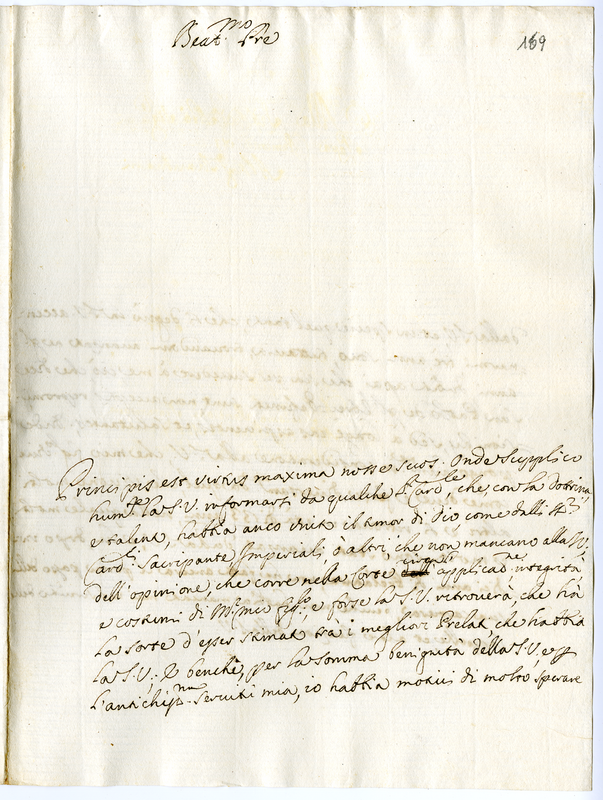 Beat.mo Pre
169
Principis est virtus maxima nosse suos. Onde supplico
hum.te la S.V. informarsi da qualche S.r Card.le, che, con la Dottrina,
e talent, habbia anco unit il timor di Dio come dalli SS.ri
Card.li Sacripante Imperiali ò altri, che non mancano alla S.V.
dell'opinione, che corre nella Corte circa applicaō.ne integrità
e costumi di M.r mio, e forse la S.V. ritroverà che hà
la sorte d'esser stimat trà i megliori Prelat che habbia
la S.V.; E benche, per la somma benignità della S.V., e p
l'antichiss.ma servitù mia, io habbia motivi di molto sperare